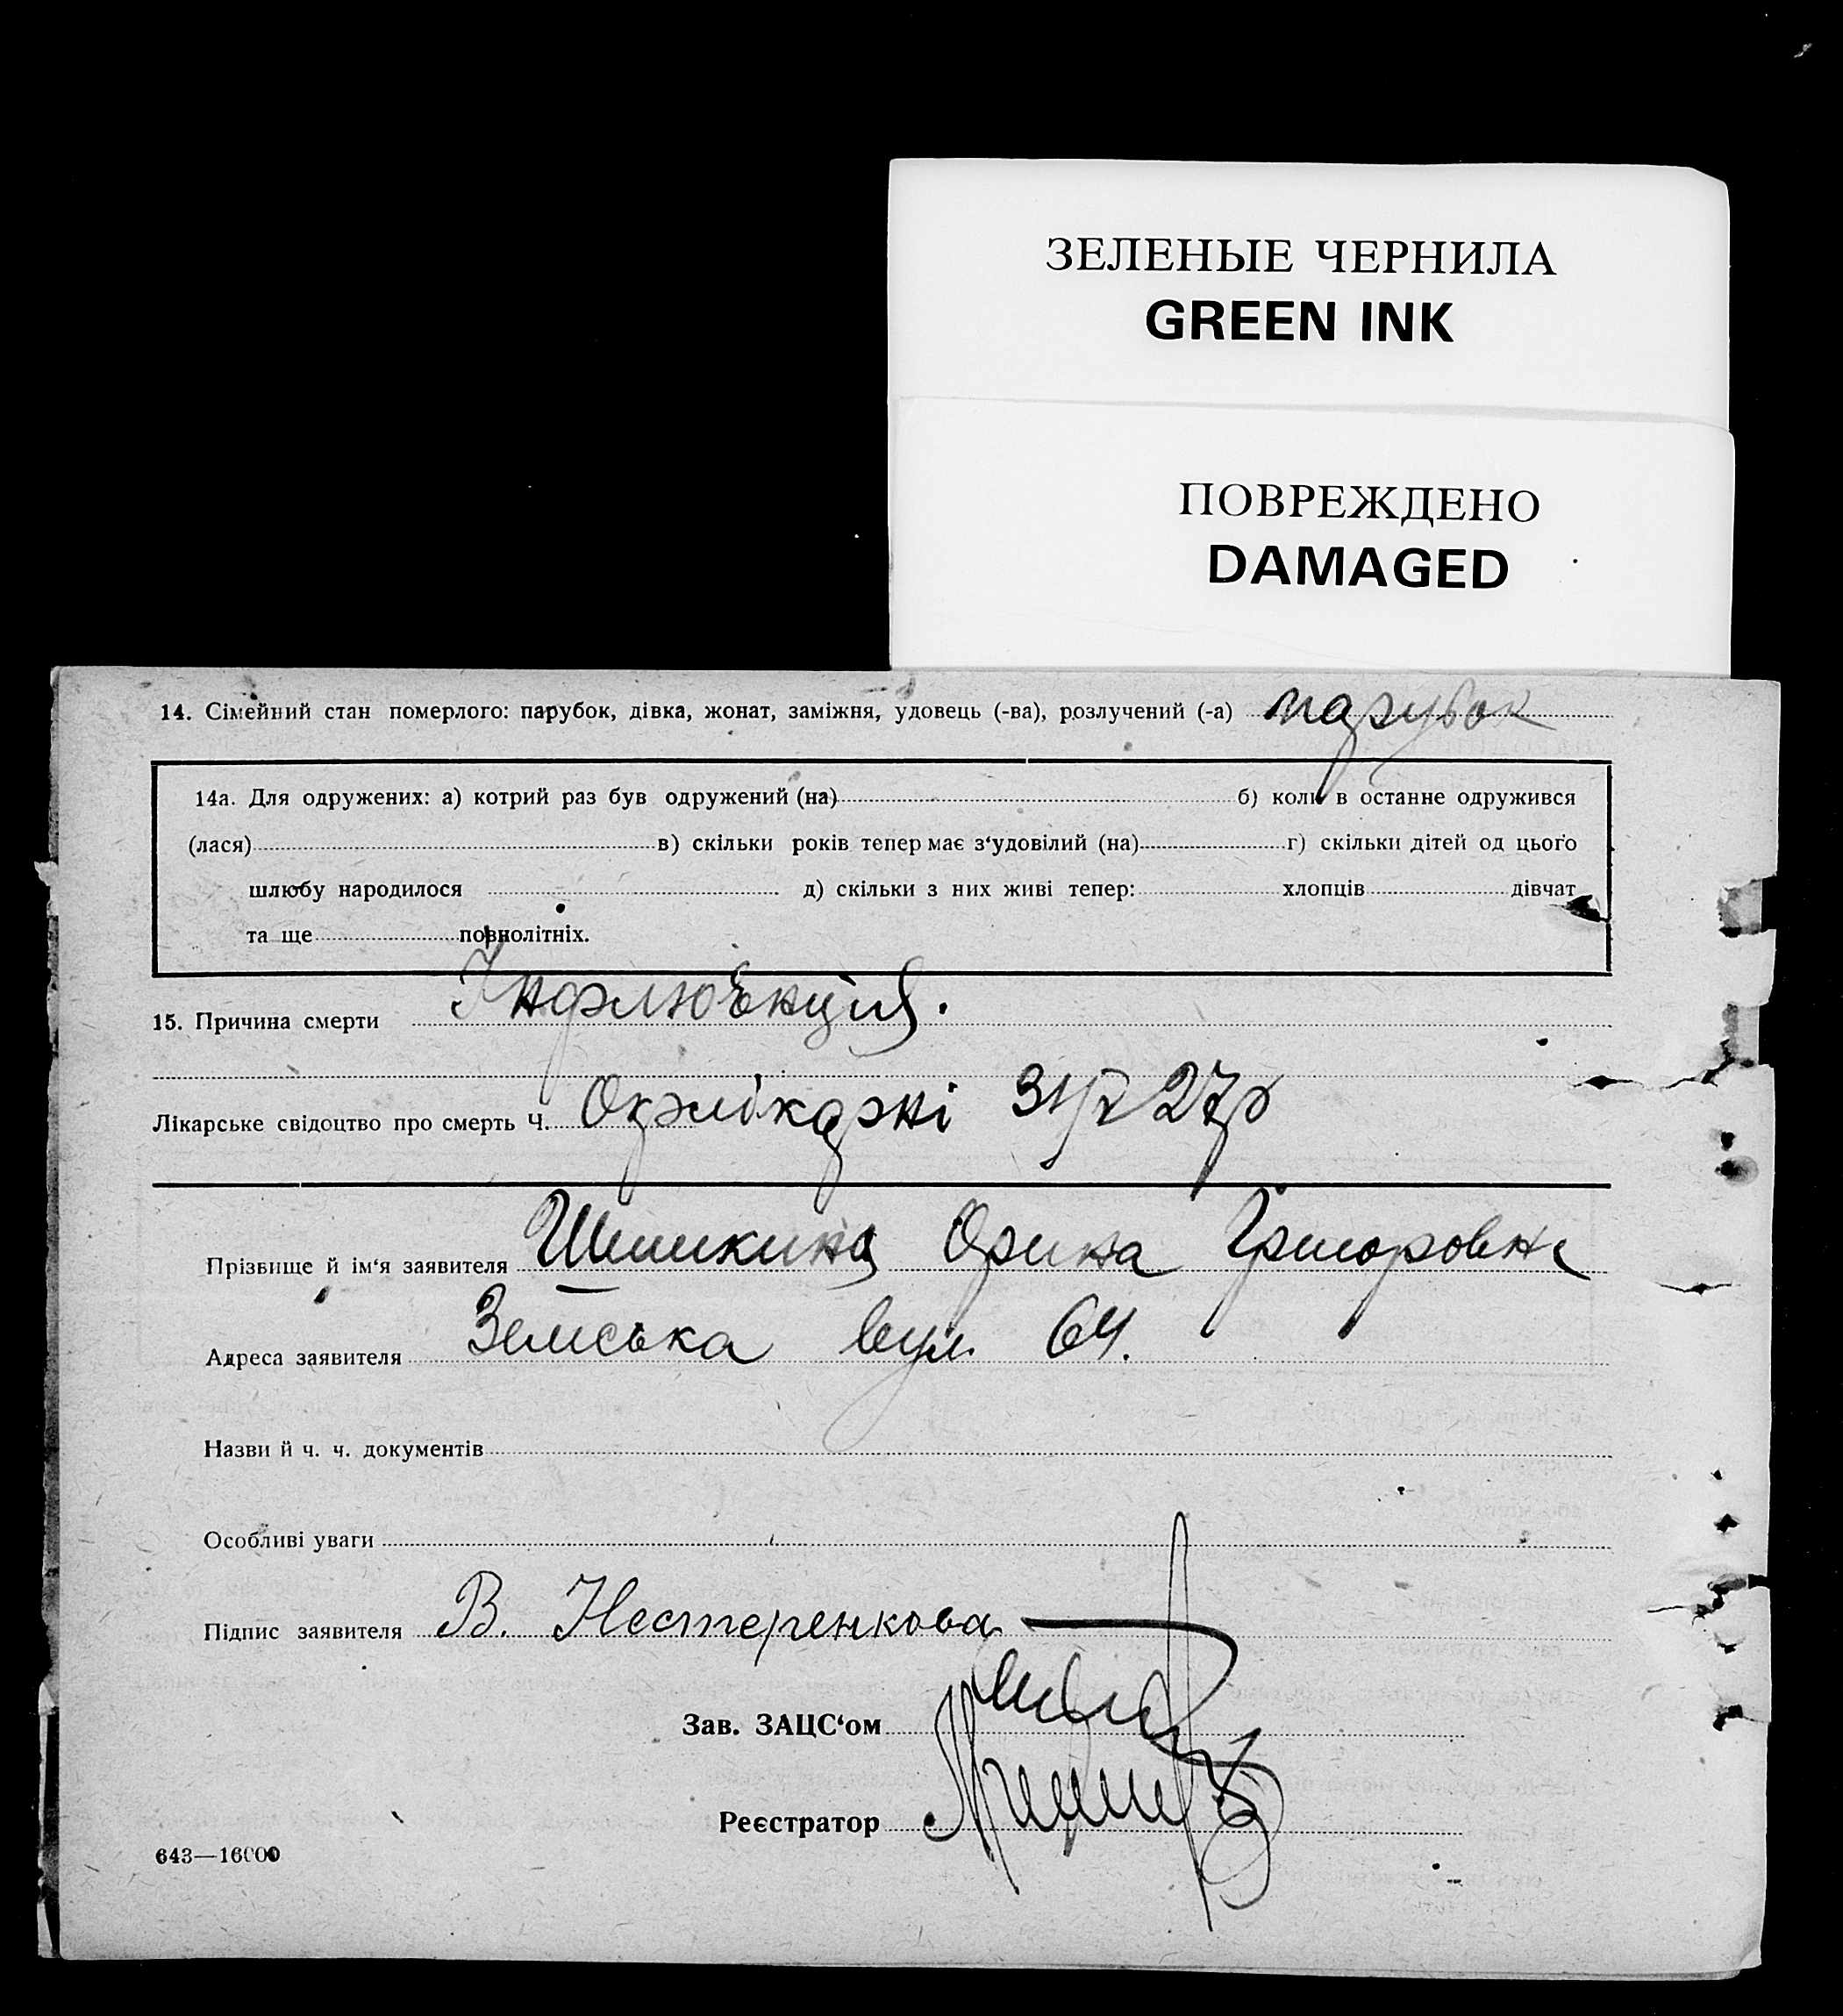 ЗЕЛЕНЫЕ ЧЕРНИЛА
GREEN INK
ПОВРЕЖДЕНО
DAMAGED
14. Сімейний стан померлого: парубок, дівка, жонат, заміжня, удовець (-ва), розлучений (-а) парубок
14а. Для одружених: а) котрий раз був одружений (на) б) коли в останне одружився
(лася) в) скільки років тепер має з‘удовілий (на) г) скільки дітей од цього
шлюбу народилося д) скільки з них живі тепер: хлопців дівчат
та ще повнолітніх.
15. Причина смерти Інфлюенция.
Лікарське свідоцтво про смерть Ч. Окрлікарні 31/2 27р
Прізвище й ім‘я заявителя Шишкина Орина Григоровна
Адреса заявителя Земська вул. 64.
Назви й ч. ч. документів
Особливі уваги
Підпис заявителя В. Нестеренкова
Зав. ЗАЦС‘ом
Реєстратор
643—16000